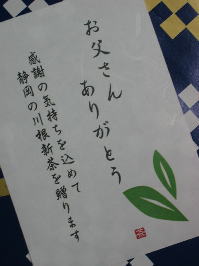 お父さん
ありがとう
感謝の気持ちを込めて
静岡の川根新茶を贈ります